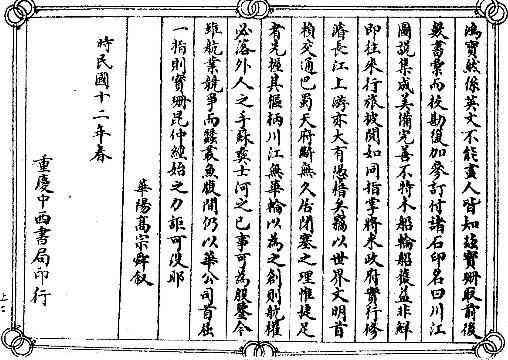 鴻寶然係英文不能盡人皆知茲寶珊取前後
數書彙而校勘復加參訂付諸石印名曰川江
圖說集成美備完善不特木船輪船獲益非鮮
即往來行旅披閱如同指掌將來政府實行修
濬長江上游亦大有憑藉矣竊以世界文明首
橫交通巴蜀天府斷無久居閉塞之理惟捷足
者先握其樞柄川江無華輪以為之創則航權
必落外人之手蘇彝士河之已事可為殷鑒今
雖航業競爭而蠶叢魚腹間仍以華公司首屈
一指則寶珊昆仲經始之力詎可沒耶
華陽高宗舜叙
時民國十二年春
重慶中西書局印行